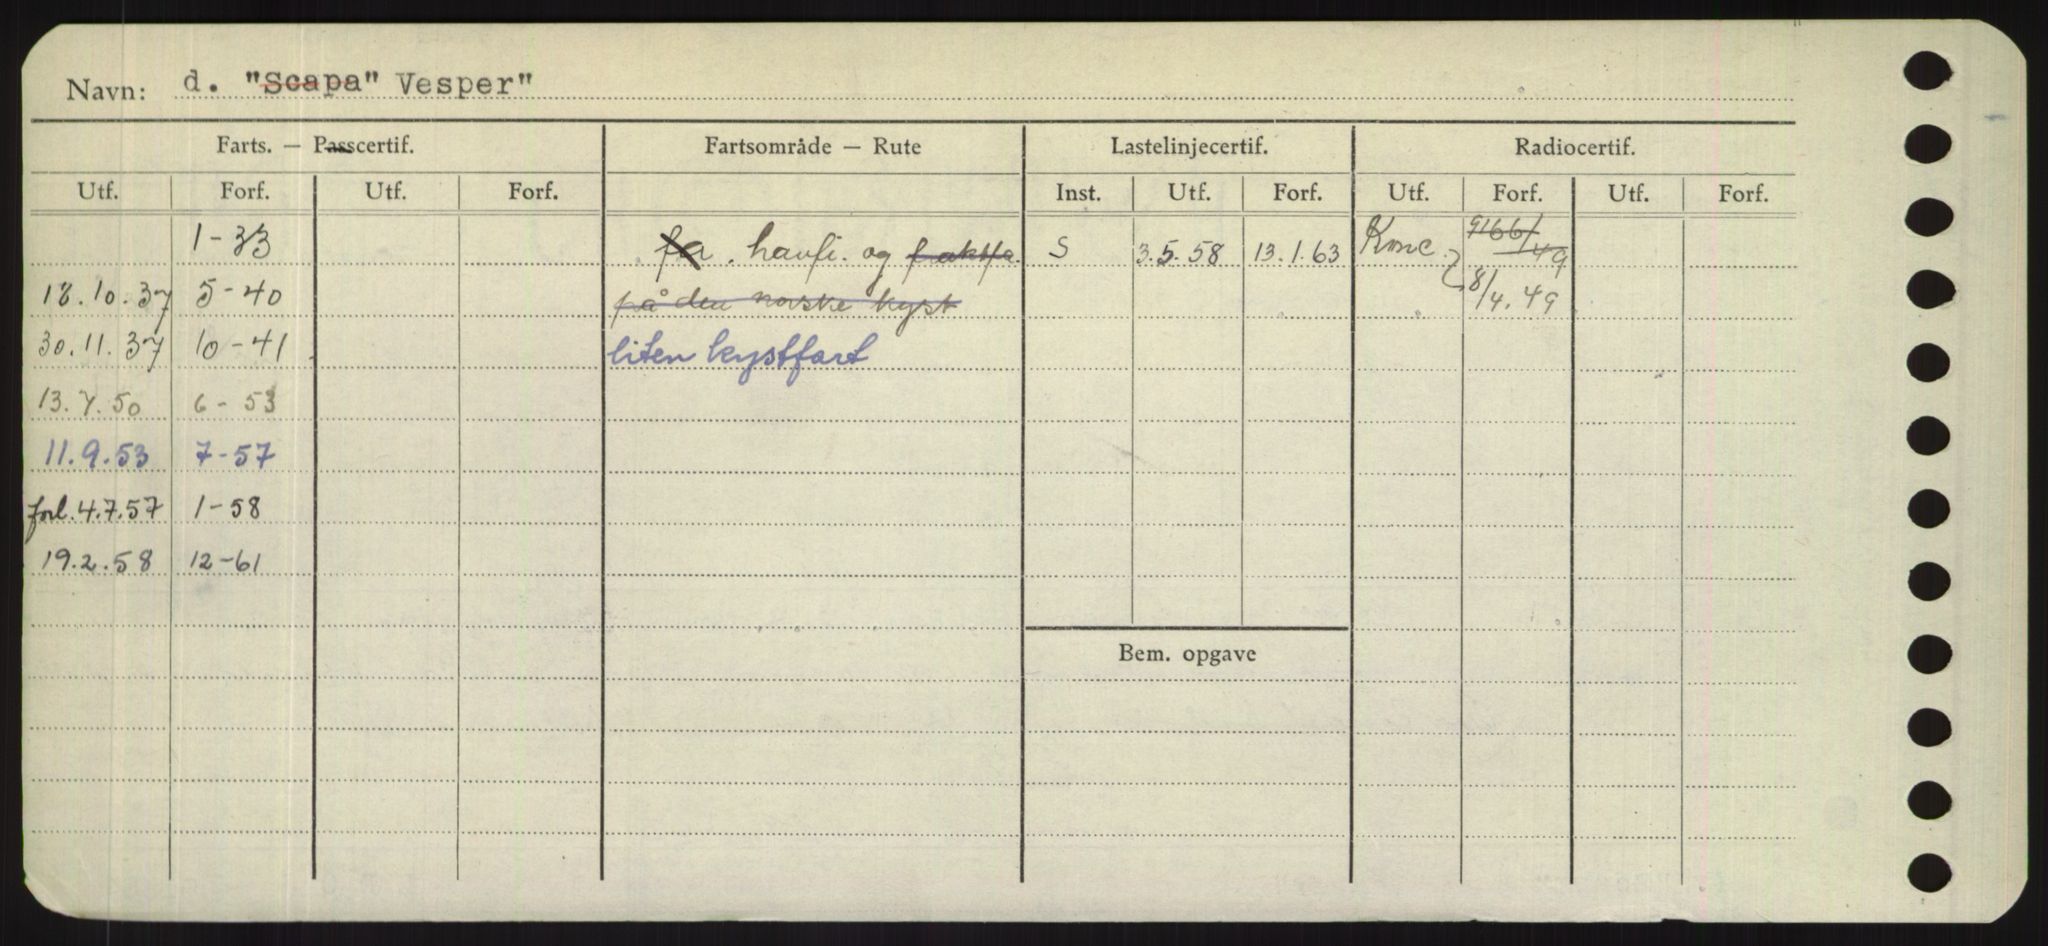 Navn: d. "Scapa" Vesper"
Farts. — Passcertif. Fartsområde — Rute Lastelinjecertif. Radiocertif.
Utf. Forf. Utf. Forf. Inst. Utf. Forf. Utf. Forf. Utf. Forf.
1-33 fa. havfi. og S 3.5.58 13.1.63
18.10.37 5-40 på den norske kyst 8/4.49
30.11.37 10-41 liten kystfart
13.7.50 6-53
11.9.53 7-57
forl. 4.7.57 1-58
19.2.58 12-61
Bem. opgave